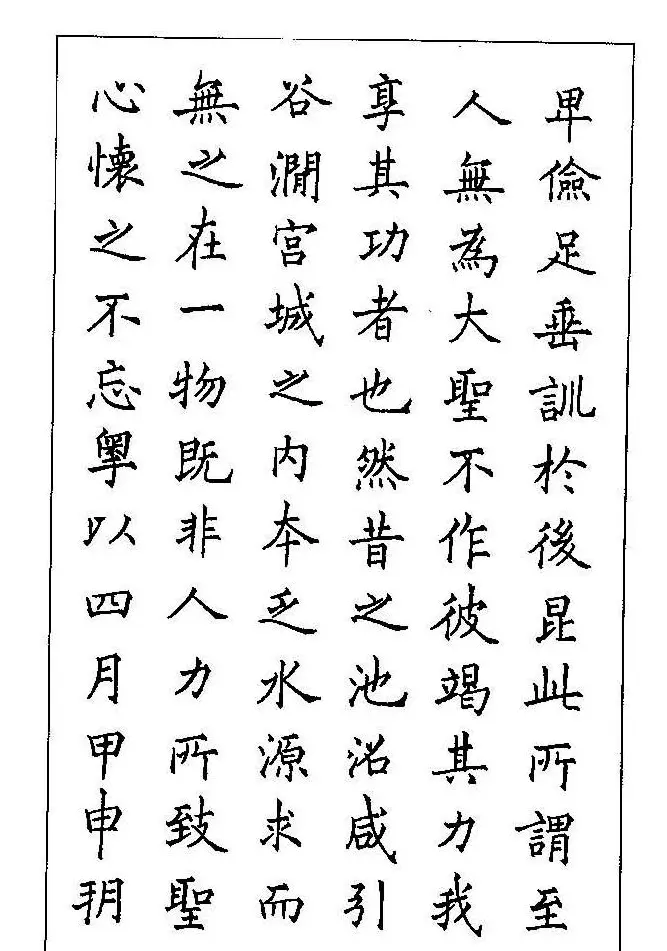 卑儉足垂訓於後昆此所謂至
人無為大聖不作彼竭其力我
享其功者也然昔之池沼咸引
谷澗宮城之內本乏水源求而
無之在一物既非人力所致聖
心懷之不忘粵以四月甲申朔